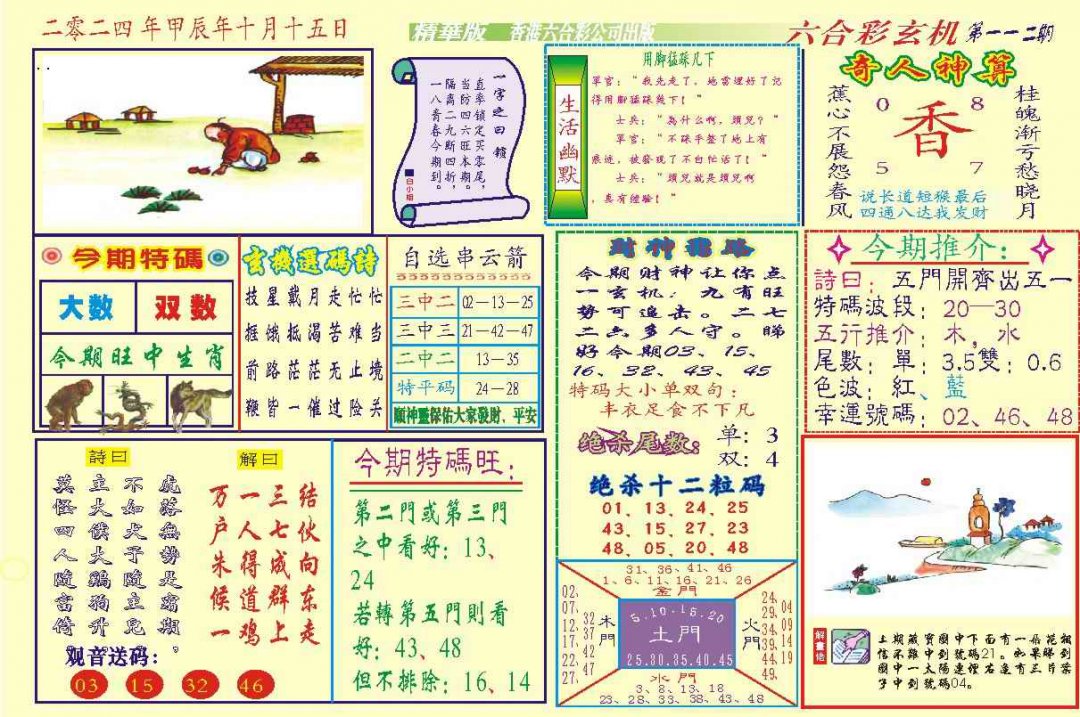 二零二四年甲辰年十月十五日
精華版
香港六合彩公司出版
六合彩玄机
第一一二期
一字之曰：锁
直率锁定买零尾，
当防四六匣本期。
隔离二九断四折，
一八青春今期到。
白小姐
生活幽默
用脚猛踩几下
軍官：“我先走了，她雷埋好了记
得用脚猛踩幾下！”
士兵：“為什么啊，頭兒？”
軍官：“不踩平整了地上有
痕迹，被發現了不白忙活了！”
士兵：“頭兒就是頭兒啊
，真有经验！”
奇人神算
蕉心不展怨春风
0 8
香
5 7
桂魄渐亏愁晓月
说长道短猴最后
四通八达我发财
今期特碼
大数
双数
今期旺中生肖
玄機選碼詩
披星戴月走忙忙
捱饿抵渴苦难当
前路茫茫无止境
鞭皆一催过险关
自选串云箭
三中二 02—13—25
三中三 21—42—47
二中二 13—35
特平码 24—28
願神靈保佑大家發財、平安
财神猎路
今期财神让你点
一玄机：九有旺
势可追击。二七
二六多人守。睇
好今期03、15、
16、32、43、45
特码大小单双句：
丰衣足食不下凡
绝杀尾数：
单：3
双：4
绝杀十二粒码
01、13、24、25
43、15、27、23
48、05、20、48
今期推介：
詩曰：五門開齊出五一
特碼波段：20—30
五行推介：木，水
尾數：單：3.5雙：0.6
色波：紅、藍
幸運號碼：02、46、48
詩曰
虎落無勢是霜期
不如犬予隨主兒，
主大僕大鷄狗升
莫怪四人隨富倚，
解曰
结伙向东走
三七成群上
一人得道鸡
万户朱候一
观音送码：
03 15 32 46
今期特碼旺：
第二門或第三門
之中看好：13、
24
若轉第五門則看
好：43、48
但不排除：16、14
31、36、41、46
1、6、11、16、21、26
金門
02、07、12、17、22、27、
32、37、42、47
木門
5.10.15.20
土門
25.30.35.40.45
火門
24、29、34、39、44、49、
04、09、14、19
水門
3、8、13、18
23、28、33、38、43、48
解畫傍
上期藏寶圖中下面有一船花相
信不難中到號碼21。如果睇到
圖中一太陽連煙右邊有三片葉
子中到號碼04。